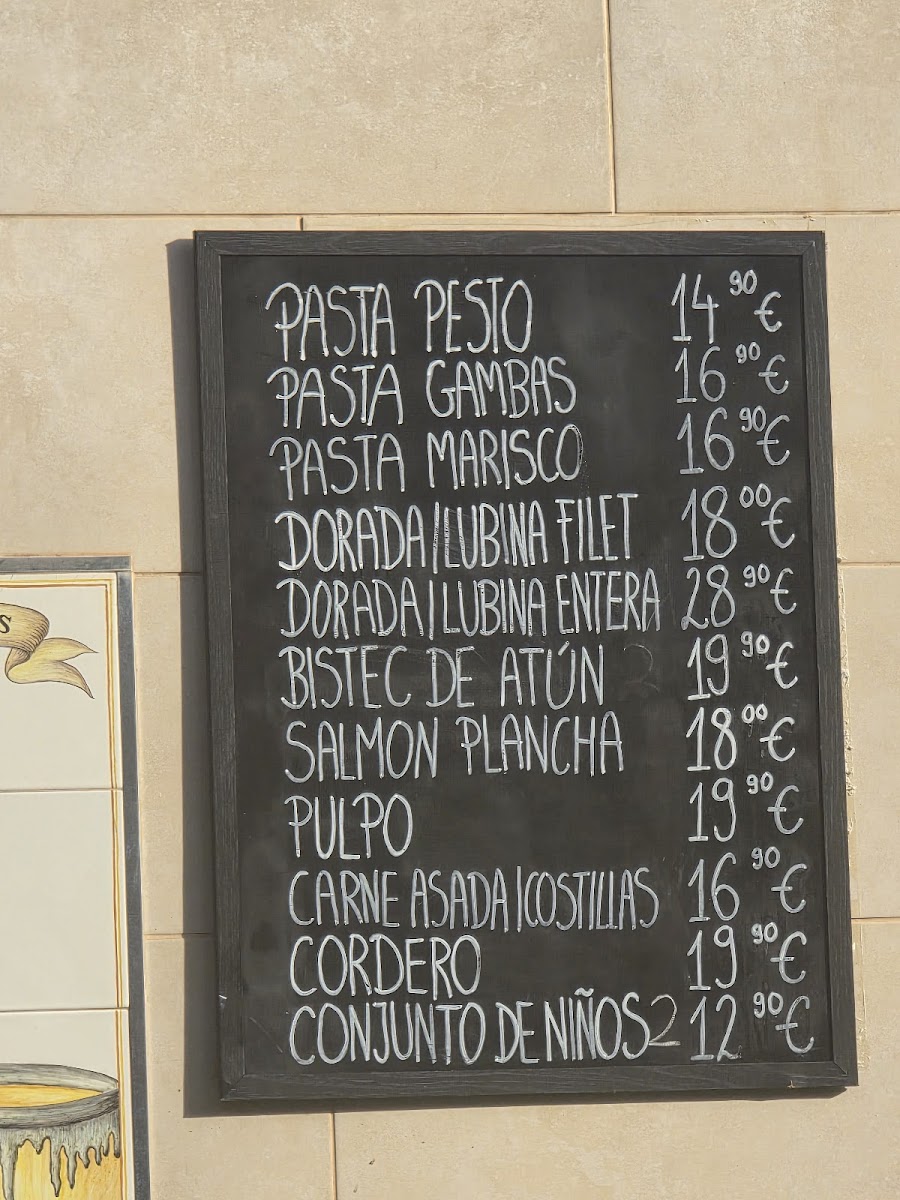 PASTA PESTO 14 90 €
PASTA GAMBAS 16 90 €
PASTA MARISCO 16 90 €
DORADA/LUBINA FILET 18 00 €
DORADA/LUBINA ENTERA 28 90 €
BISTEC DE ATÚN 19 90 €
SALMON PLANCHA 18 00 €
PULPO 19 90 €
CARNE ASADA/COSTILLAS 16 90 €
CORDERO 19 90 €
CONJUNTO DE NIÑOS 2 12 90 €
S